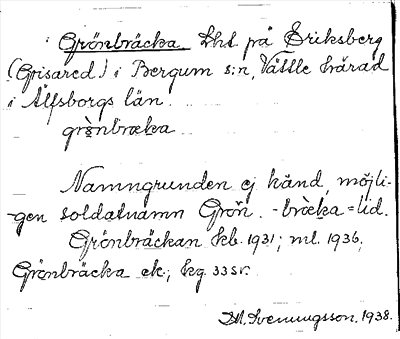 Grönbräcka Lht på Eriksberg
(Grisared) i Bergum s:n, Vättle härad
i Älfsborgs län.
grö̀nbræka
Namngrunden ej känd, möjli-
-gen soldatnamn Grön. -bræ̀ka = lid.
Grönbräckan kb. 1931; ml. 1936,
Grönbräcka ek.; kg 33 sv.
Svenungsson. 1938.